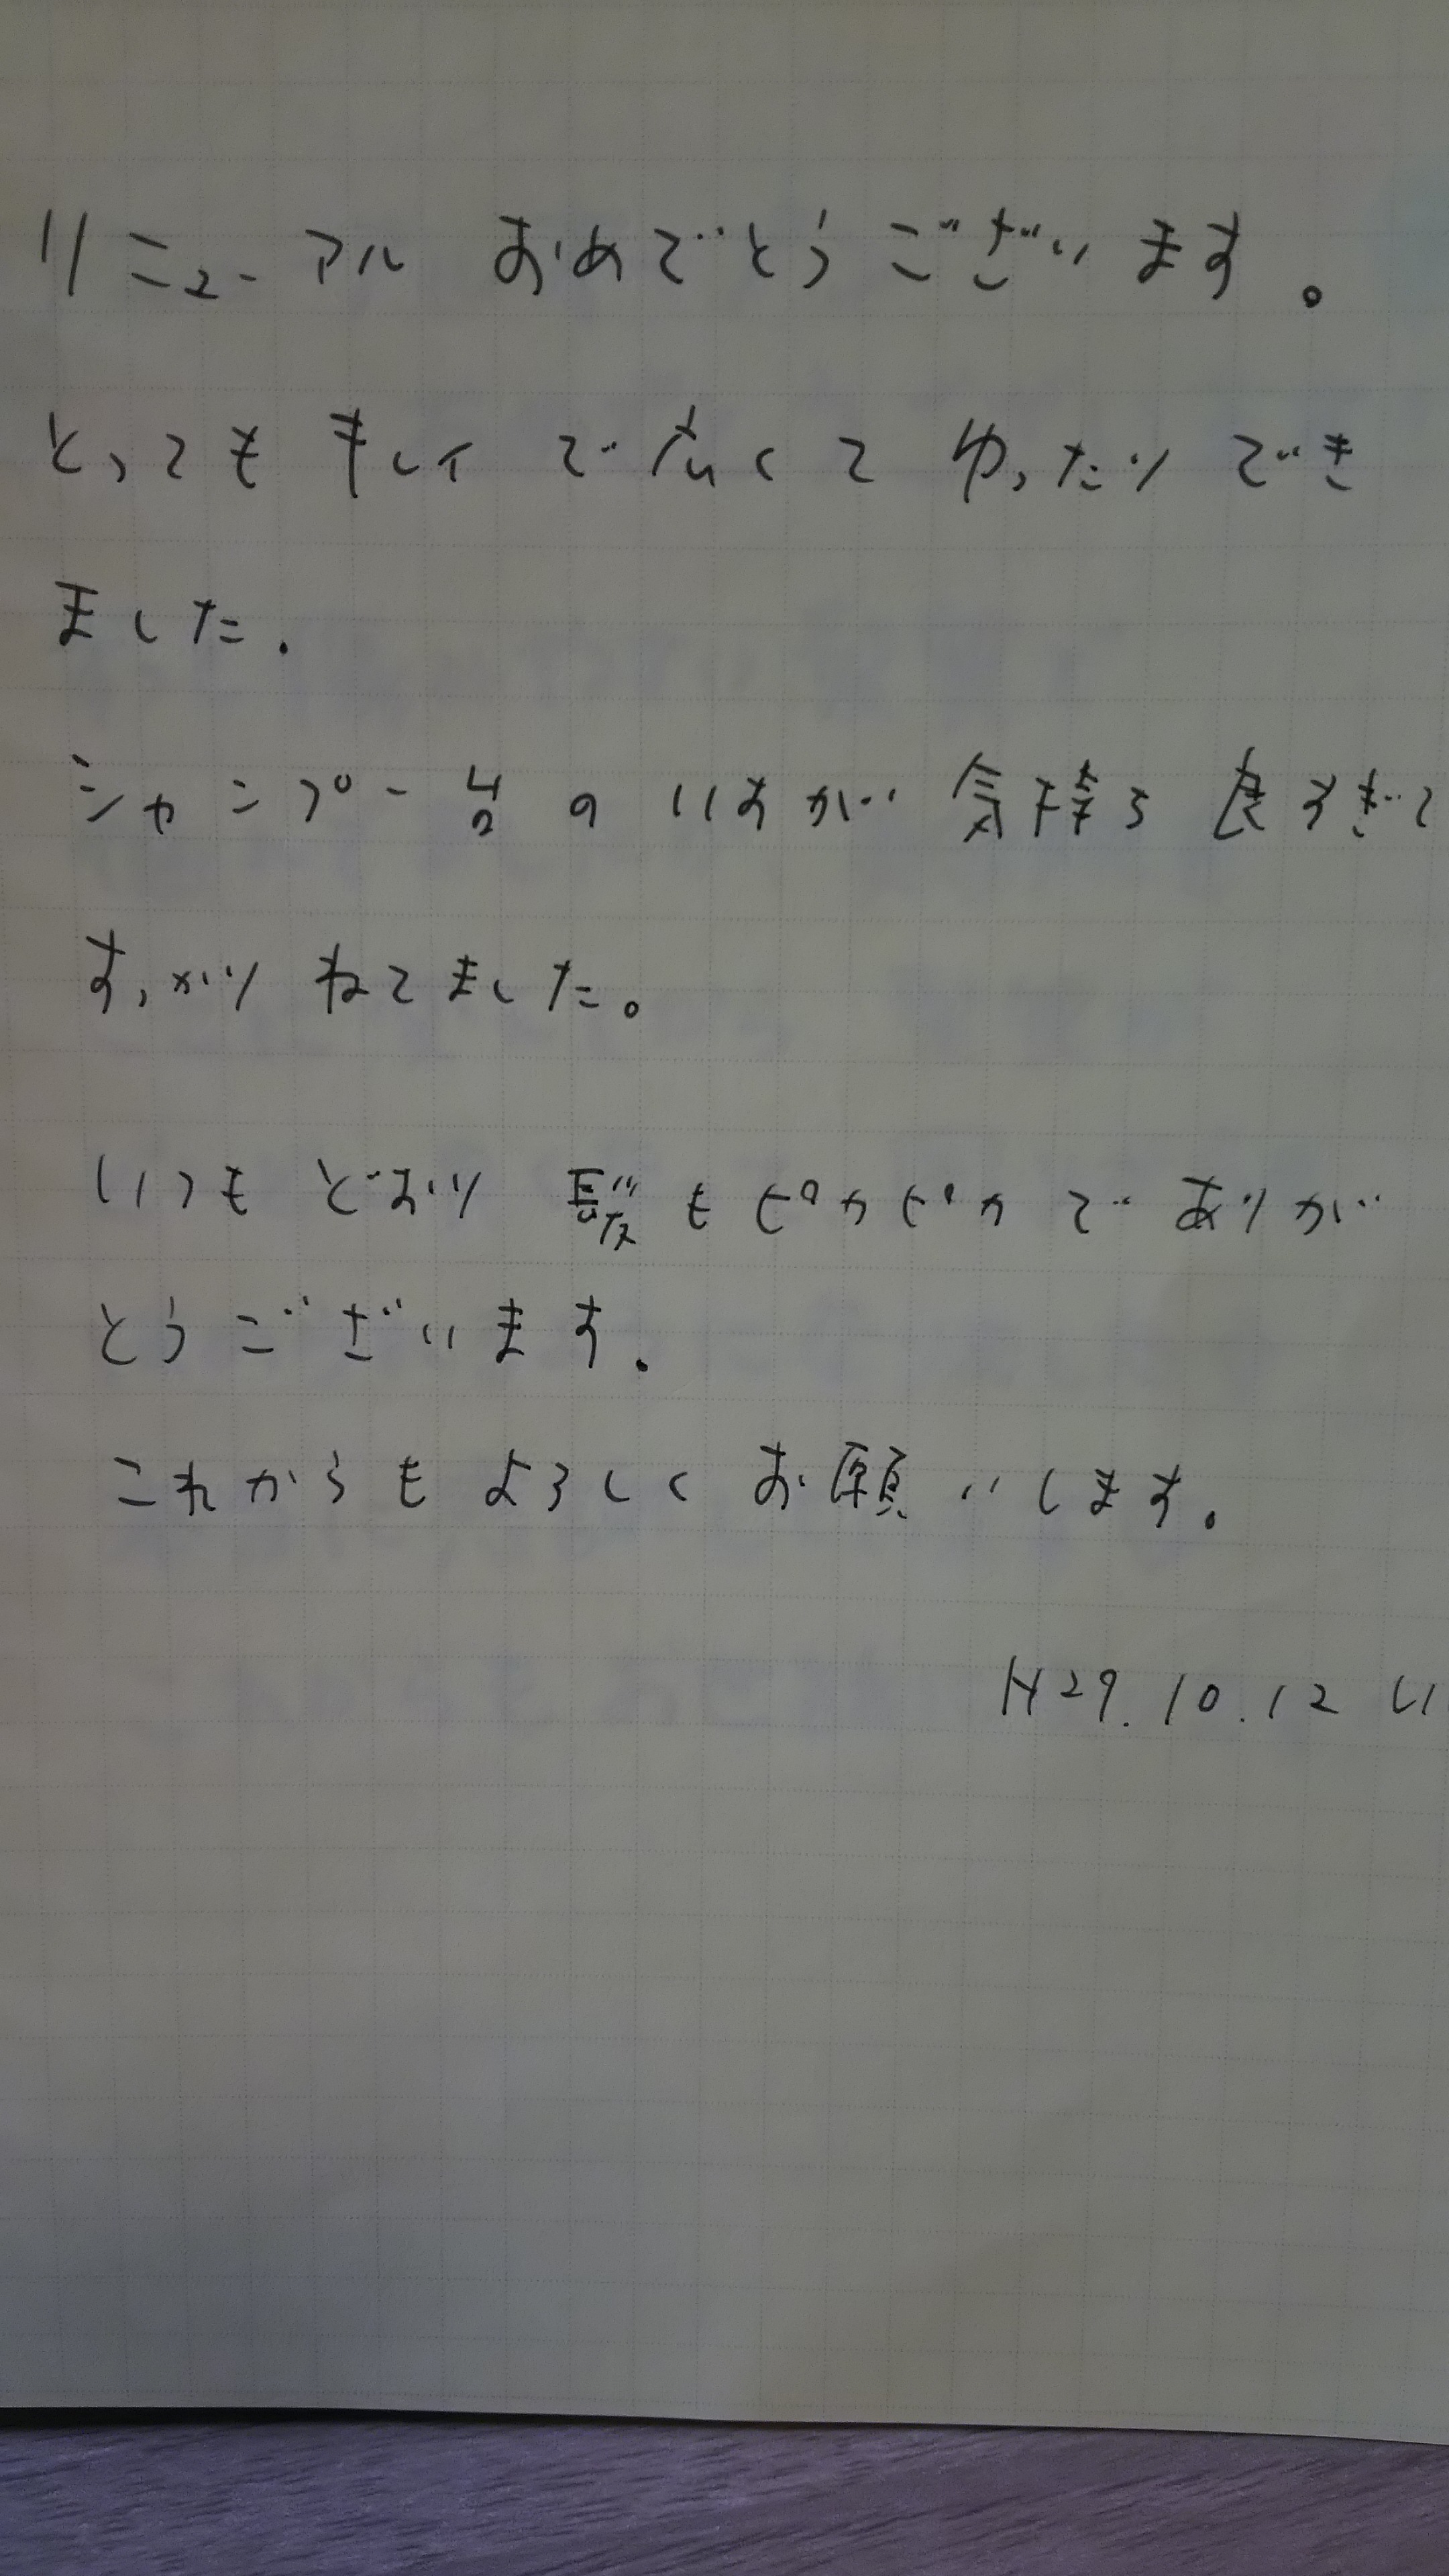 リニューアル おめでとうございます。
とっても キレイ で 広くて ゆったり でき
ました.
シャンプー台 の いすが 気持ち 良すぎて
すっかり ねてました。
いつも どおり 髪 も ピカピカ で ありが
とうございます.
これからも よろしく お願いします.
H29.10.12